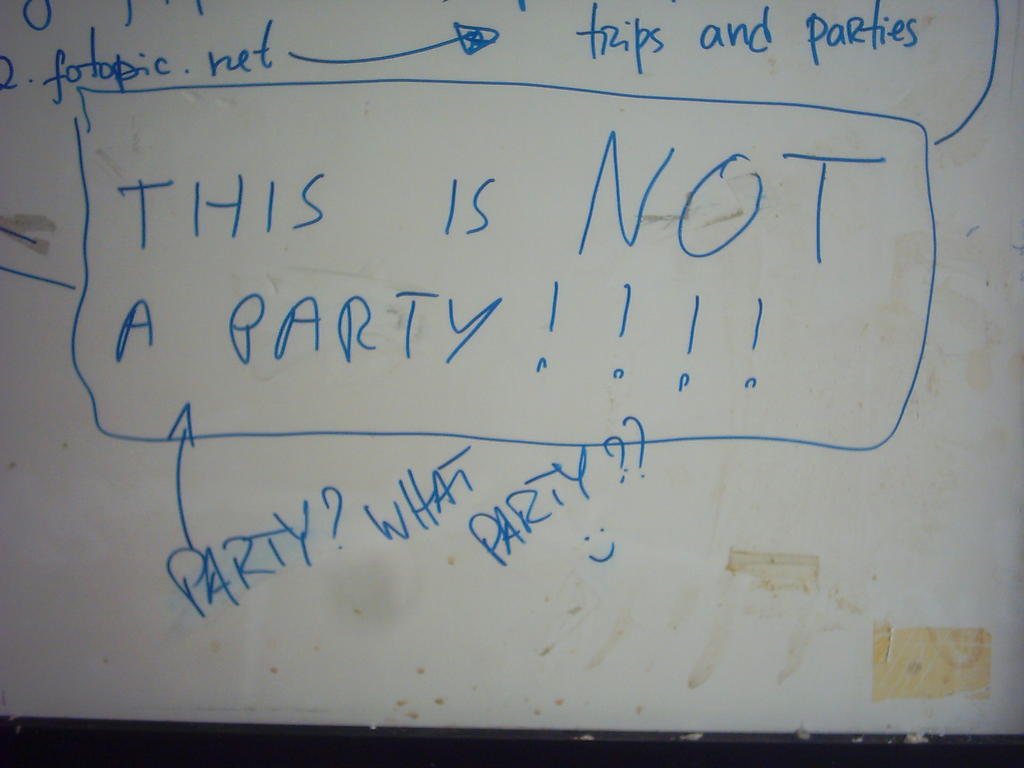 2. fotopic.net trips and parties
THIS IS NOT
A PARTY!!!!
PARTY? WHAT
PARTY??
:)